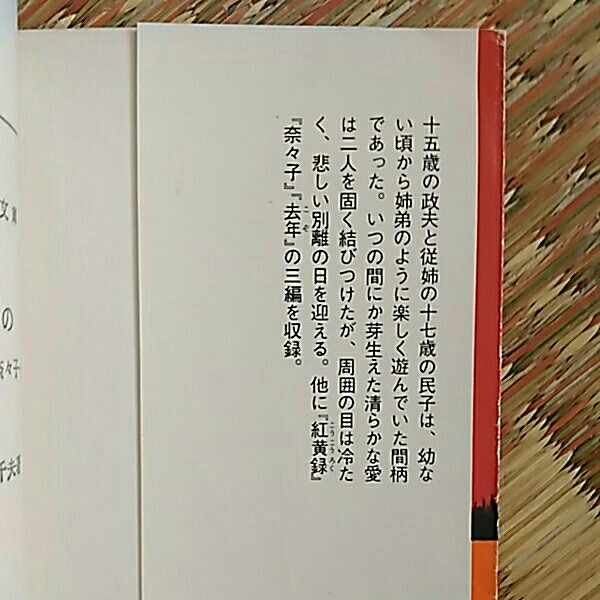 十五歳の政夫と従姉の十七歳の民子は、幼な
い頃から姉弟のように楽しく遊んでいた間柄
であった。いつの間にか芽生えた清らかな愛
は二人を固く結びつけたが、周囲の目は冷た
く、悲しい別離の日を迎える。他に『紅黄録』
こうこうろく
『奈々子』『去年』の三編を収録。
こぞ
文
の
々子
千夫